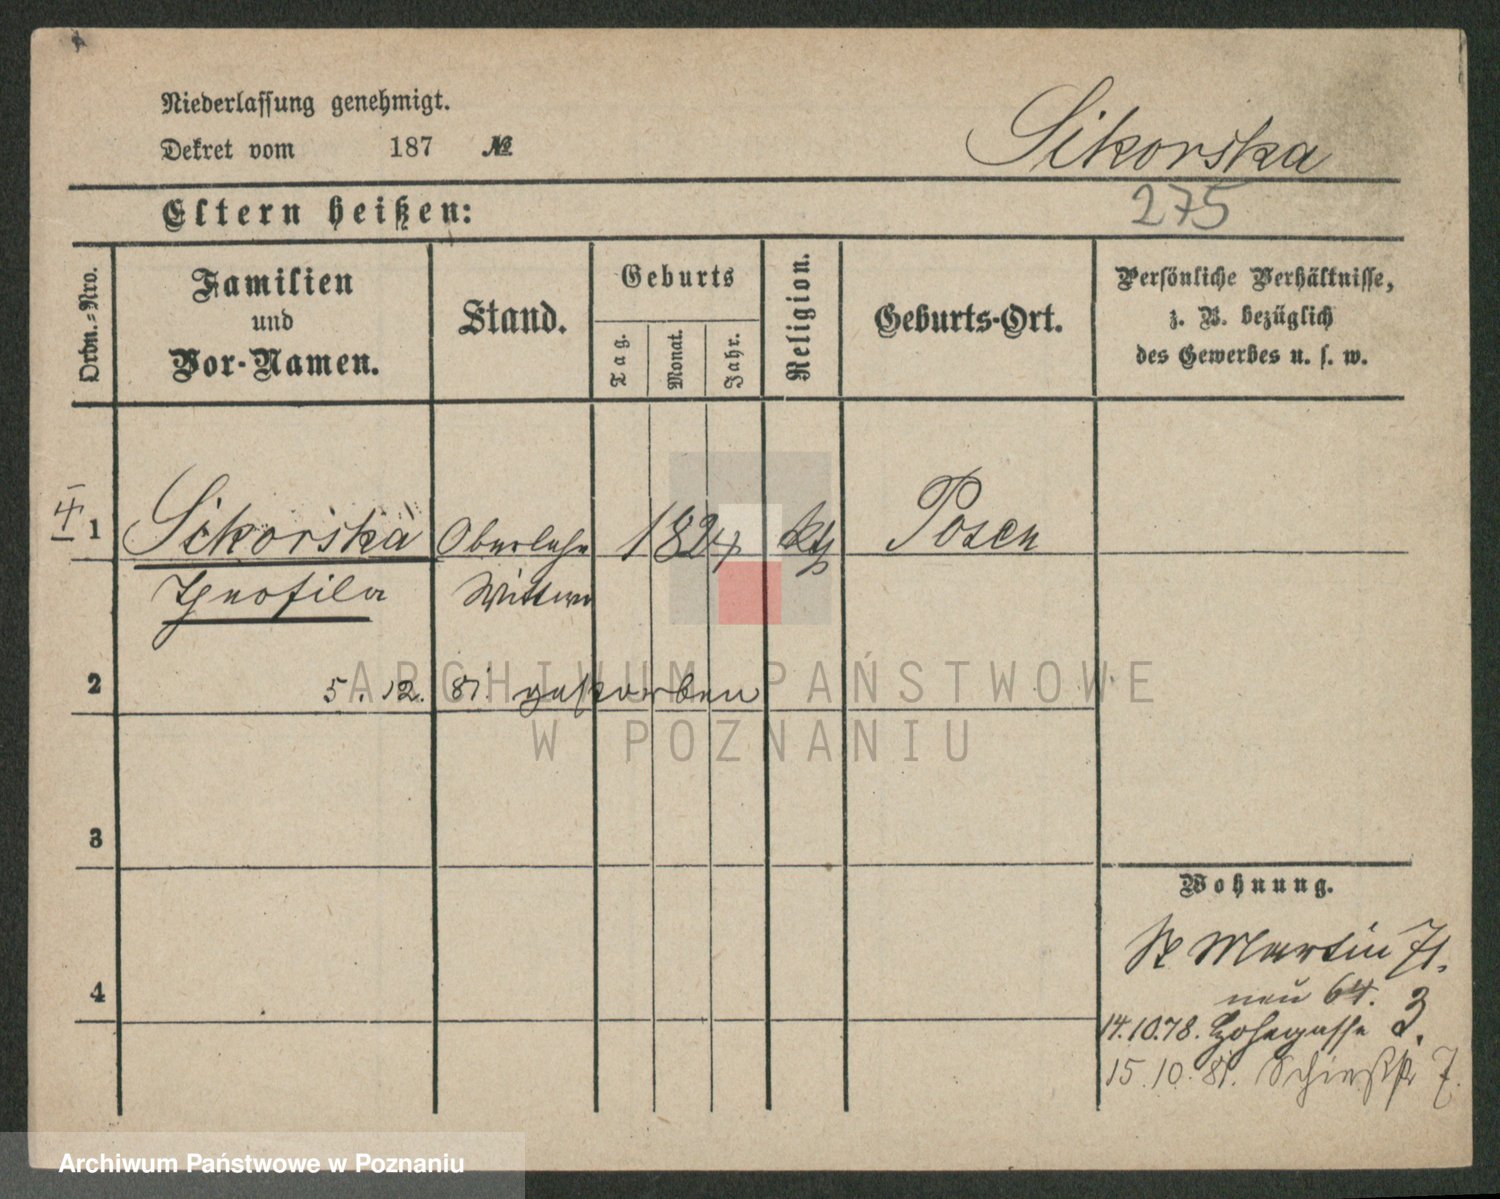 Niederlassung genehmigt.
Dekret vom 187 №
Sikorska
275
Eltern heißen:
Ordn.-Nro.
Familien
und
Vor-Namen.
Stand.
Geburts
Tag.
Monat.
Jahr.
Religion.
Geburts-Ort.
Persönliche Verhältnisse,
z. B. bezüglich
des Gewerbes u. s. w.
1 Sikorska 1824 kth Posen
Wittwe
2 5. 12. 81. gestorben
3
4
Wohnung.
St Martin 71.
neu 64.
14.10.78. Hohegasse 3.
15.10.81. Schießstr 7.
ARCHIWUM PAŃSTWOWE
W POZNANIU
Archiwum Państwowe w Poznaniu